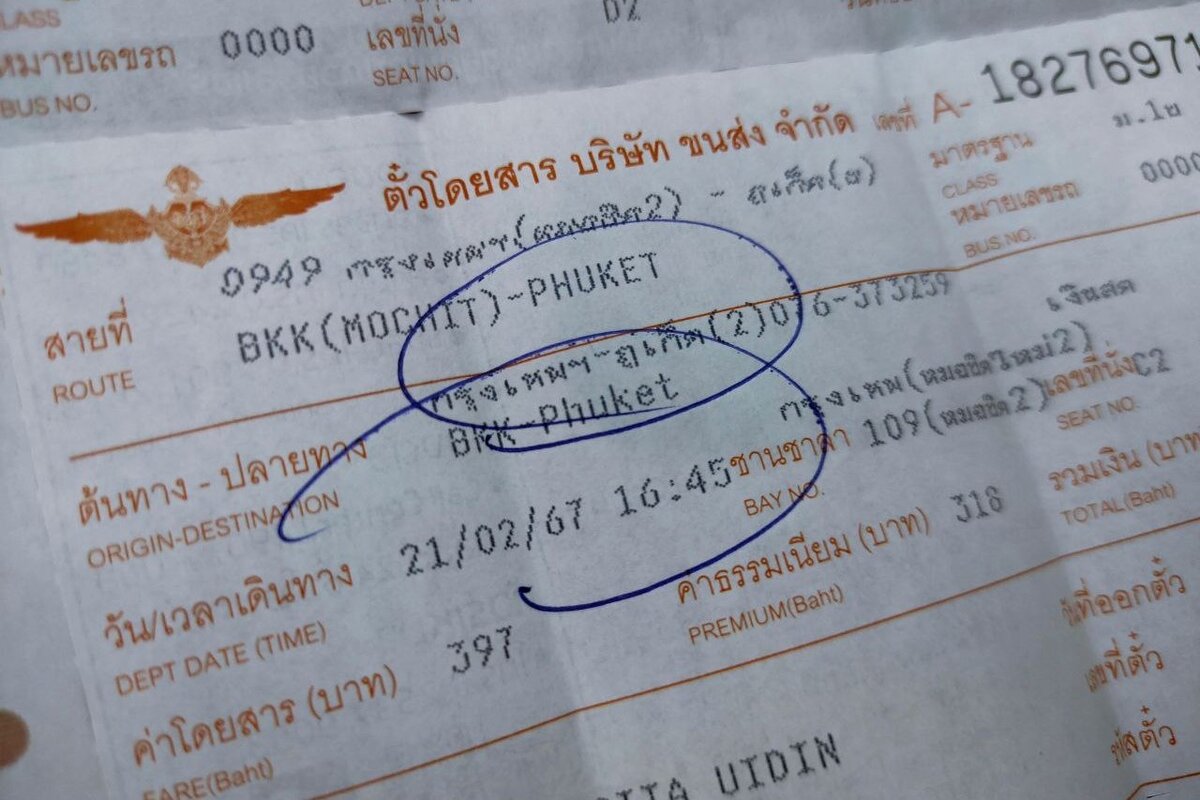 CLASS
หมายเลขรถ 0000 เลขที่นั่ง D2
BUS NO. SEAT NO.
ตั๋วโดยสาร บริษัท ขนส่ง จำกัด เลขที่ A- 18276971
มาตรฐาน ม.1ข
CLASS
0949 กรุงเทพฯ(หมอชิต2) - ภูเก็ต(ข)
หมายเลขรถ 0000
BUS NO.
สายที่ BKK(MOCHIT)-PHUKET
ROUTE
กรุงเทพฯ-ภูเก็ต(2)076-373259 เงินสด
ต้นทาง - ปลายทาง BKK-Phuket กรุงเทพ(หมอชิตใหม่2)
ORIGIN-DESTINATION
เลขที่นั่ง C2
SEAT NO.
วัน/เวลาเดินทาง 21/02/67 16:45 ชานชาลา 109(หมอชิต2)
DEPT DATE (TIME) BAY NO.
รวมเงิน (บาท
TOTAL(Baht)
ค่าโดยสาร (บาท) 397 ค่าธรรมเนียม (บาท) 318
FARE(Baht) PREMIUM(Baht)
วันที่ออกตั๋ว
เลขที่ตั๋ว
รหัสตั๋ว
UIDIN